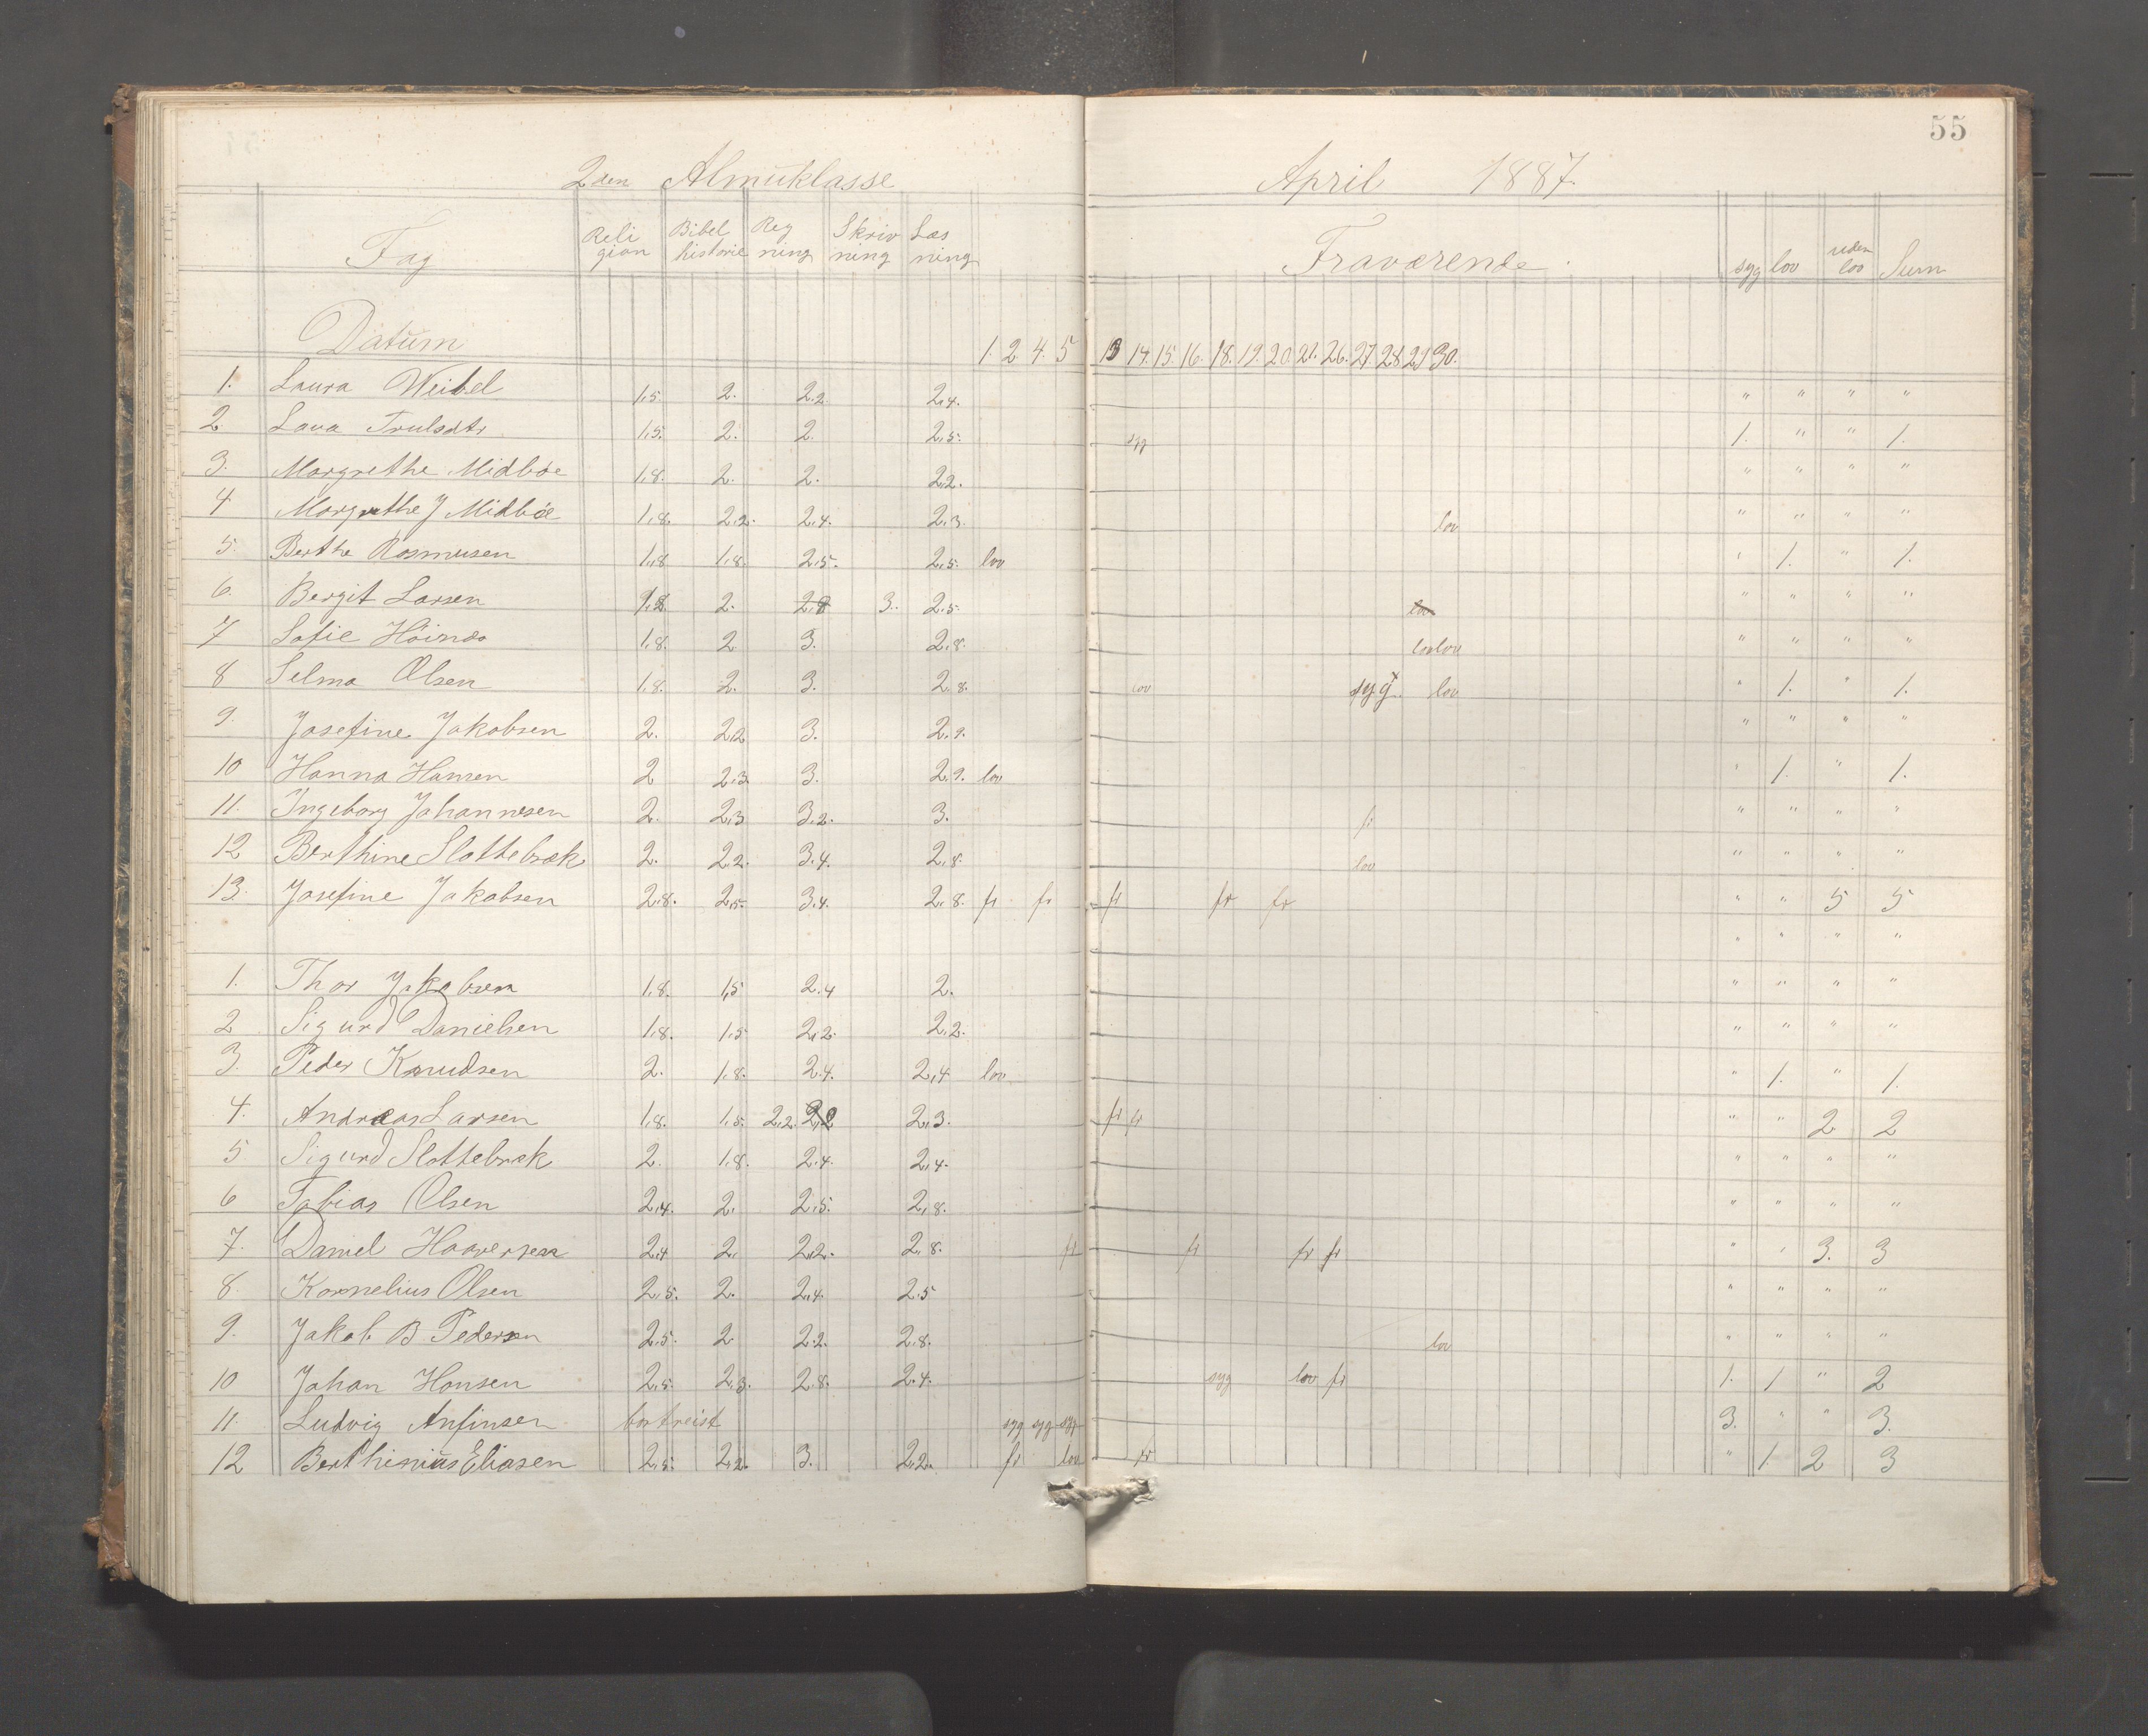 55
2den Almuklasse April 1887.
Fag Religion Bibelhistorie Regning Skrivning Læsning Fraværende. syg lov uden lov Sum
Datum 1. 2 4. 5 13 14. 15. 16. 18. 19. 20. 21. 26. 27. 28 29 30.
1. Laura Weibel 1,5. 2. 2.2 2,4. " " " "
2. Lava Trulsdtr 1,5. 2. 2. 2,5. syg 1. " " 1.
3. Margrethe Midbøe 1,8. 2. 2. 2,2. " " " "
4 Margrethe J Midbøe 1,8. 2,2. 2,4. 2,3. lov " " " "
5. Berthe Rasmusen 1,8 1,8. 2,5. 2,5. lov " 1. " 1.
6. Bergit Larsen 1,8 2. 2,8 3. 2,5. lov " " " "
7 Sofie Höinæs 1,8. 2 3. 2,8. lov lov " " " "
8 Selma Olsen 1,8. 2. 3. 2,8. lov syg. lov " 1. " 1.
9. Josefine Jakobsen 2. 2,2 3. 2,9. " " " "
10 Hanna Hansen 2 2,3. 3. 2,9. lov " 1. " 1.
11. Ingeborg Johannesen 2. 2,3 3.2. 3. fr " " " "
12 Berthine Slottebræk 2. 2,2. 3.4. 2,8. lov " " " "
13. Josefine Jakobsen 2,8. 2,5. 3.4. 2,8. fr fr fr fr fr " " 5 5
" " " "
1. Thor Jakobsen 1,8. 1,5 2.4 2. " " " "
2 Sigurd Danielsen 1,8. 1,5 2,2. 2,2. " " " "
3. Peder Knudsen 2. 1,8. 2.4. 2,4 lov " 1. " 1.
4. Andreas Larsen 1,8. 1,5. 2,2. 2,2 2,3. fr fr " " 2 2
5 Sigurd Slottebræk 2. 1,8. 2.4. 2,4. " " " "
6 Tobias Olsen 2,4. 2. 2,5. 2,8. " " " "
7. Daniel Haaversen 2,4 2. 2,2. 2,8. fr fr fr fr " " 3. 3
8. Kornelius Olsen 2,5. 2. 2,4. 2.5 " " " "
9. Jakob B. Pedersen 2.5. 2 2.2. 2.8. lov " " " "
10 Johan Hansen 2,5. 2,3. 2.8. 2.4. syg lov fr 1. 1 " 2
11. Ludvig Anfinsen bortreist syg syg syg 3. " " 3.
12 Berthinius Eliasen 2,5. 2,2. 3. 2,2. fr lov fr " 1. 2 3